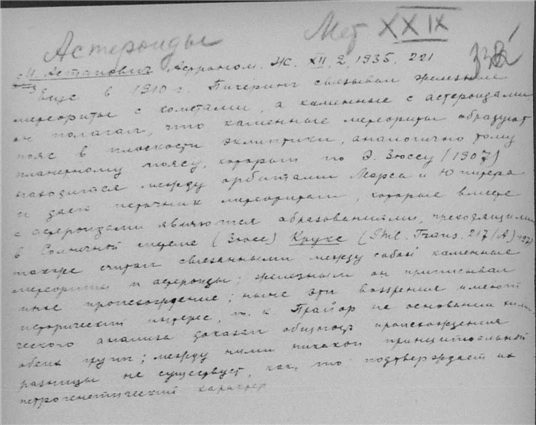 Астероиды Мет XXIX
И. Астапович Астроном. Ж. XII, 2, 1935. 221
Еще в 1910 г. Пикеринг связывал железные
метеориты с кометами, а каменные с астероидами
он полагал, что каменные метеориты образуют
пояс в плоскости эклиптики, аналогично тому
планетному поясу, который по Э. Зюссу (1907)
находится между орбитами Марса и Юпитера
и даёт источник метеоритам, которые вместе
с астероидами являются образованиями,
в Солнечной системе (Зюсс) Крукс (Phil. Trans. 217 (A)
также считал связанными между собой каменные
метеориты и астероиды; железным он приписывал
иное происхождение; ныне эти воззрения имеют
исторический интерес, т. к. Прайор на основании хими-
ческого анализа доказал общность происхождения
обеих групп; между ними никакой принципиальной
разницы не существует, как это подтверждает их
петрогенетический характер